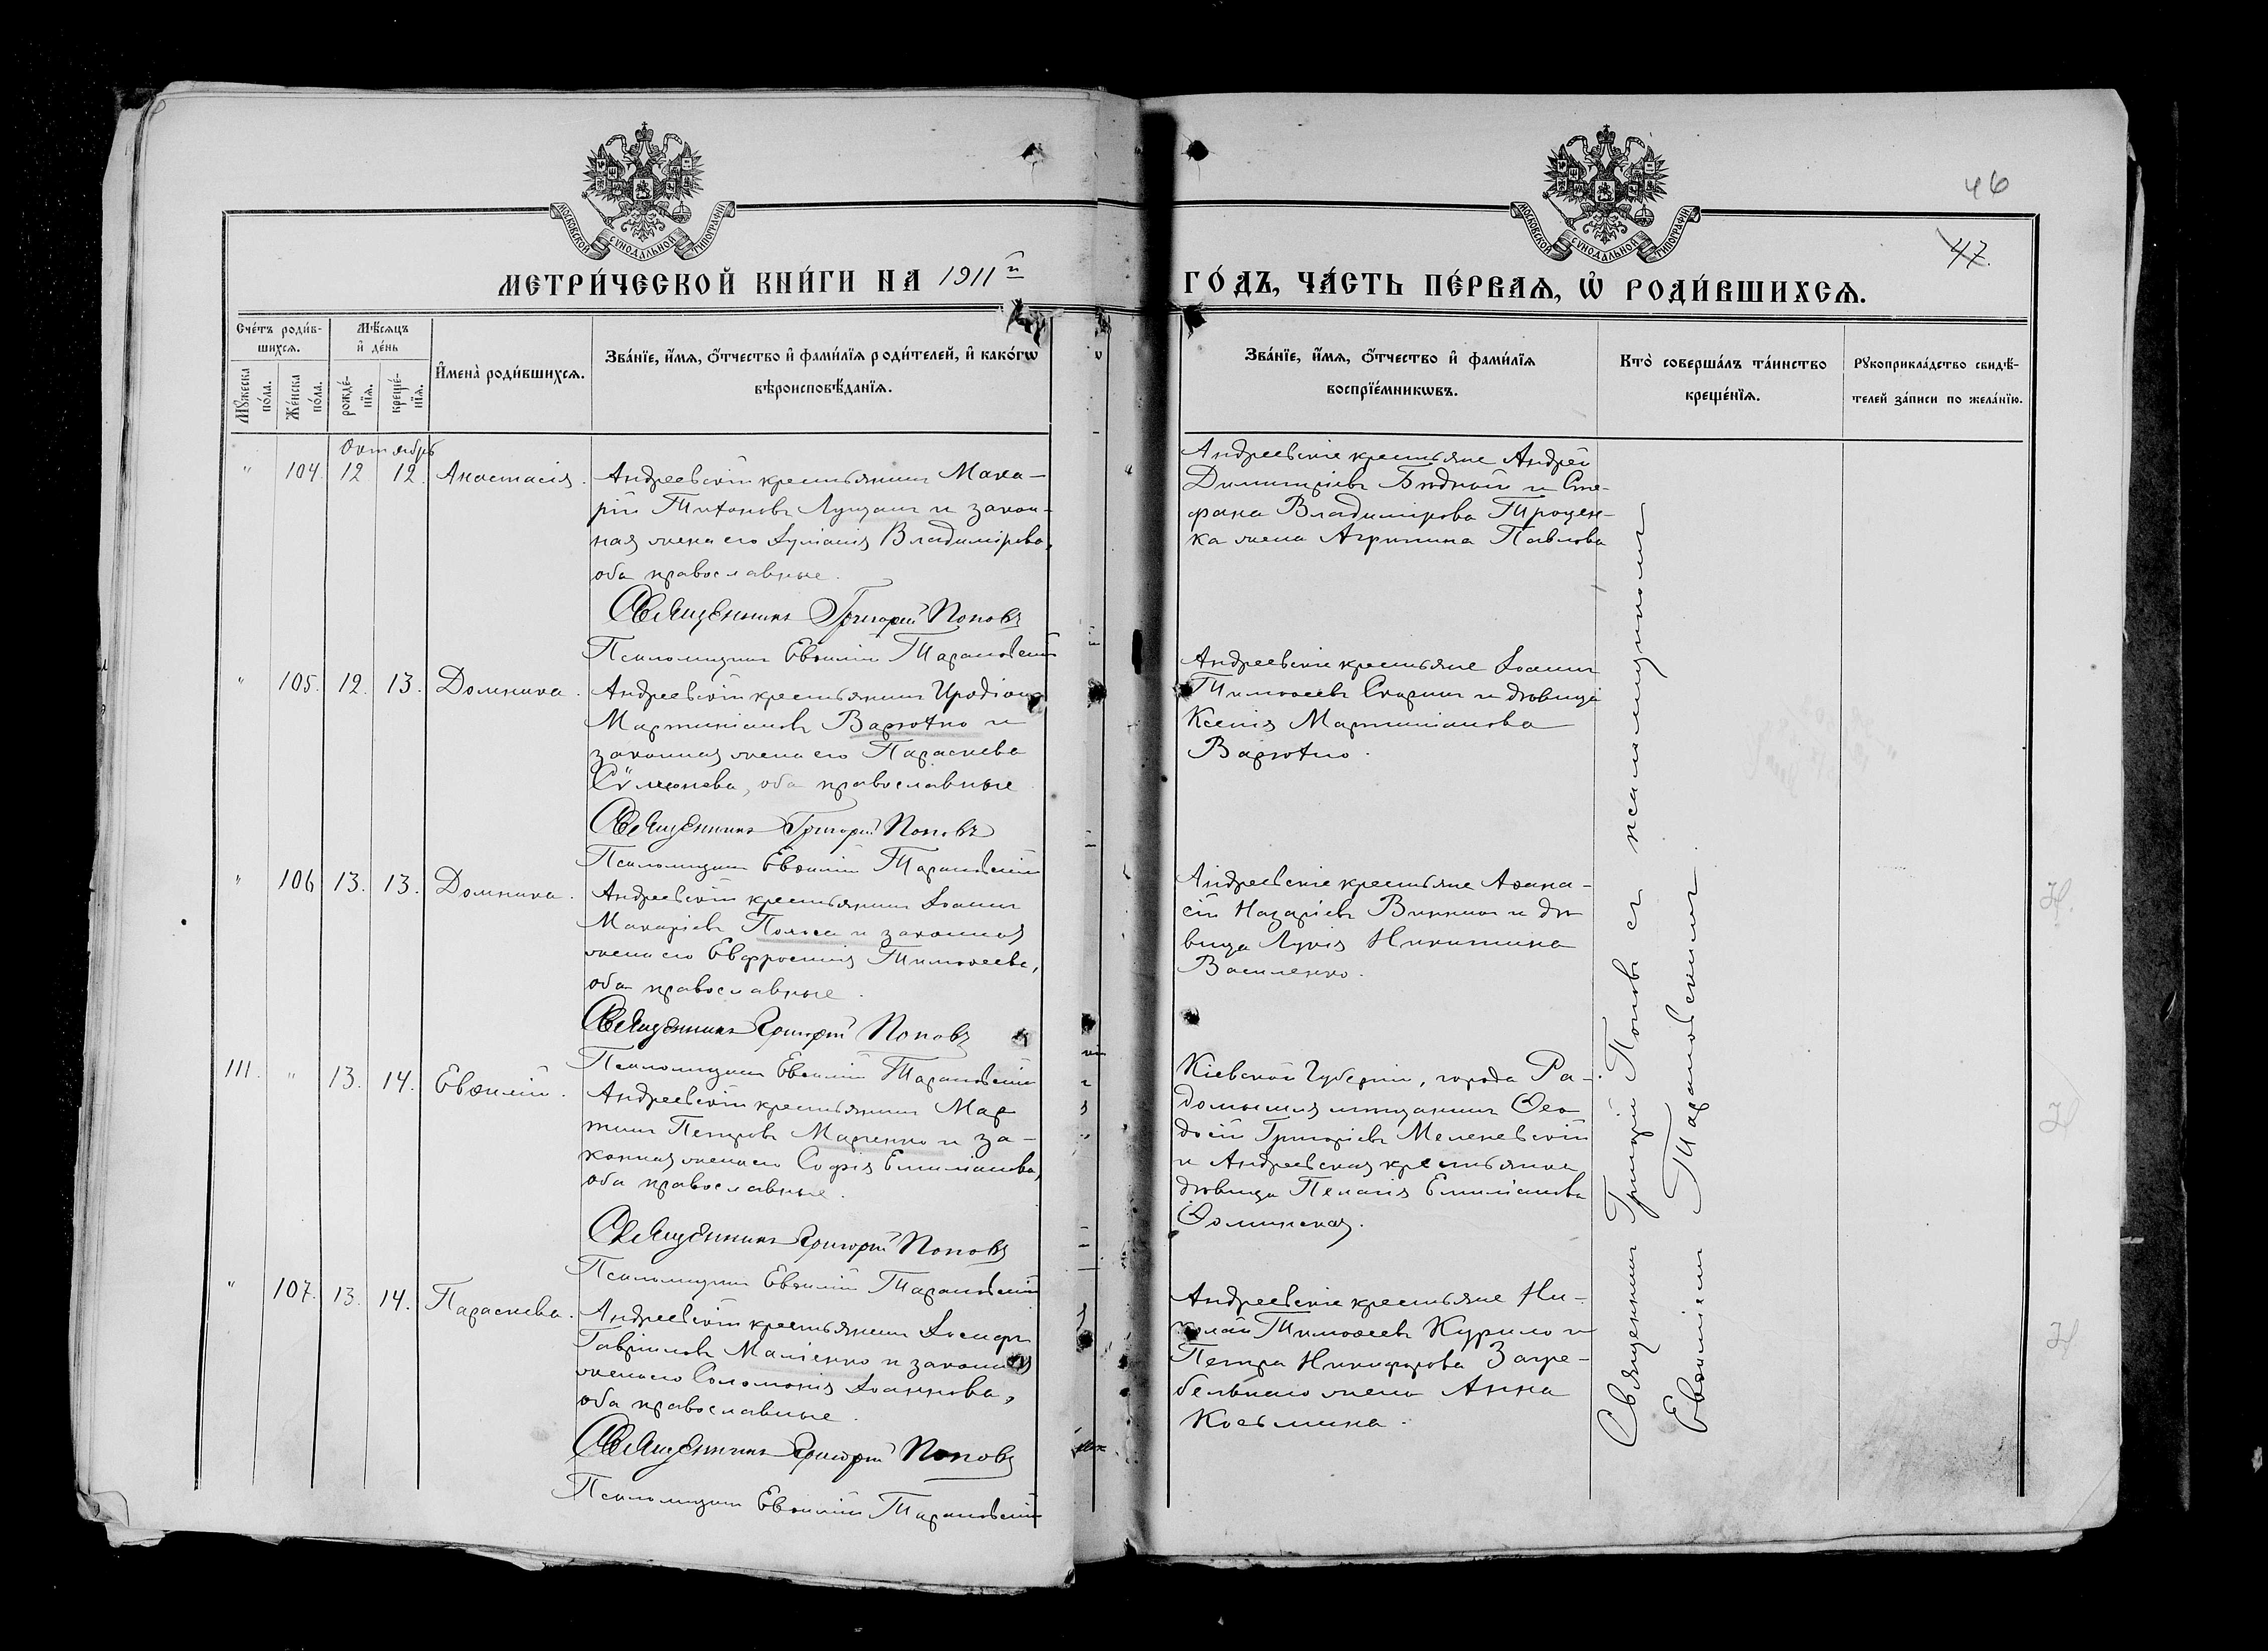 46
47.
МОСКОВСКОЙ СУНОДАЛЬНОЙ ТИПОГРАФІИ
МОСКОВСКОЙ СУНОДАЛЬНОЙ ТИПОГРАФІИ
МЕТРИ́ЧЕСКОЙ КНИ́ГИ НА 1911й
ГО́ДЪ, ЧА́СТЬ ПЕ́РВАѦ, Ѡ҆ РОДИ́ВШИХСѦ.
Сче́тъ роди́в-
шихсѧ.
Мꙋ́жеска по́ла.
Же́нска по́ла.
Мѣ́сѧцъ
и҆ де́нь
рожде́-
нїѧ.
креще́-
нїѧ.
И҆мена̀ роди́вшихсѧ.
Зва́нїе, и҆́мѧ, ѻ҆́тчество и҆ фами́лїѧ роди́телей, и҆ како́гѡ
вѣроисповѣ́данїѧ.
Зва́нїе, и҆́мѧ, ѻ҆́тчество и҆ фами́лїѧ
воспрїе́мникѡвъ.
Кто̀ соверша́лъ та́инство
креще́нїѧ.
Рꙋкоприкла́дство свидѣ́-
телей за́писи по жела́нїю.
Октябрь
" 104. 12 12. Анастасія.
Андреевскій крестьянинъ Мака-
рій Титовъ и закон-
ная жена его Іуліанія Владимірова,
оба православные.
Священникъ Григорій Поповъ
Псаломщикъ Евѳимій Тарановскій
Андреевскіе крестьяне Андрей
Димитріевъ Бѣдный и Сте-
фана Владимірова Троцен-
ка жена Агрипина Павлова
" 105. 12. 13. Домникa.
Андреевскій крестьянинъ Иродіонъ
Мартиніановъ и
законная жена его Параскева
Сѵмеонова, оба православные
Священникъ Григорій Поповъ
Псаломщикъ Евѳимій Тарановскій
Андреевскіе крестьяне Іоаннъ
Тимоѳеевъ и дѣвица
Ксенія Мартиніанова
" 106 13. 13. Домника.
Андреевскій крестьянинъ Іоаннъ
Макаріевъ и законная
жена его Евфросинія Тимоѳеева,
оба православные.
Священникъ Григорій Поповъ
Псаломщикъ Евѳимій Тарановскій
Андреевскіе крестьяне Аѳана-
сій Назаріевъ и дѣ
вица Лукія Никитина
Василенко.
111. " 13. 14. Евѳимій.
Андреевскій крестьянинъ Мар
тинъ Петровъ Марченко и за-
конная жена его Софія Емиліанова,
оба православные.
Священникъ Григорій Поповъ
Псаломщикъ Евѳимій Тарановскій
Кіевской Губерніи, города Ра-
домысля мѣщанинъ Ѳео
досій Григоріевъ Меленевскій
и Андреевская крестьянка
дѣвица Пелагія Емиліанова
Ѳоминская.
" 107. 13. 14. Параскева.
Андреевскій крестьянинъ Іосифъ
Гавріиловъ Маліенко и законная
жена его Соломонія Іоаннова,
оба православные.
Священникъ Григорій Поповъ
Псаломщикъ Евѳимій Тарановскій
Андреевскіе крестьяне Ни-
колай Тимоѳеевъ Курило и
Петра Никифорова Загре-
бельнаго жена Анна
Косьмина.
Священникъ Григорій Поповъ съ псаломщикомъ
Евѳиміемъ Тарановскимъ.